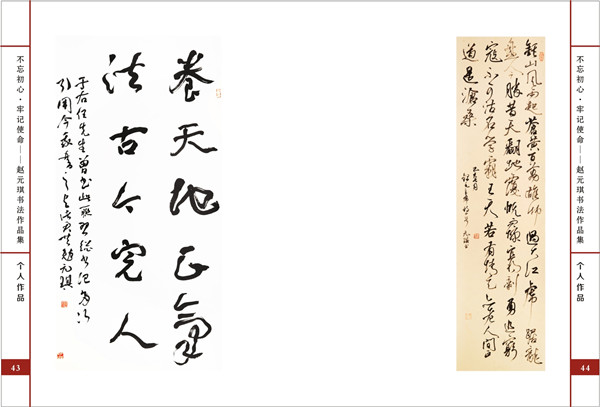 不忘初心·牢记使命——赵元琪书法作品集
个人作品
43
養天地正氣
法古今完人
于右任先生曾书此联习总书记多次
引用今
鐘山风雨起蒼黄百万雄师過大江虎踞龍
盘今勝昔天翻地覆慨而慷宜将剩勇追窮
寇不可沽名学霸王天若有情天亦老人间正
道是滄桑
不忘初心·牢记使命——赵元琪书法作品集
个人作品
44